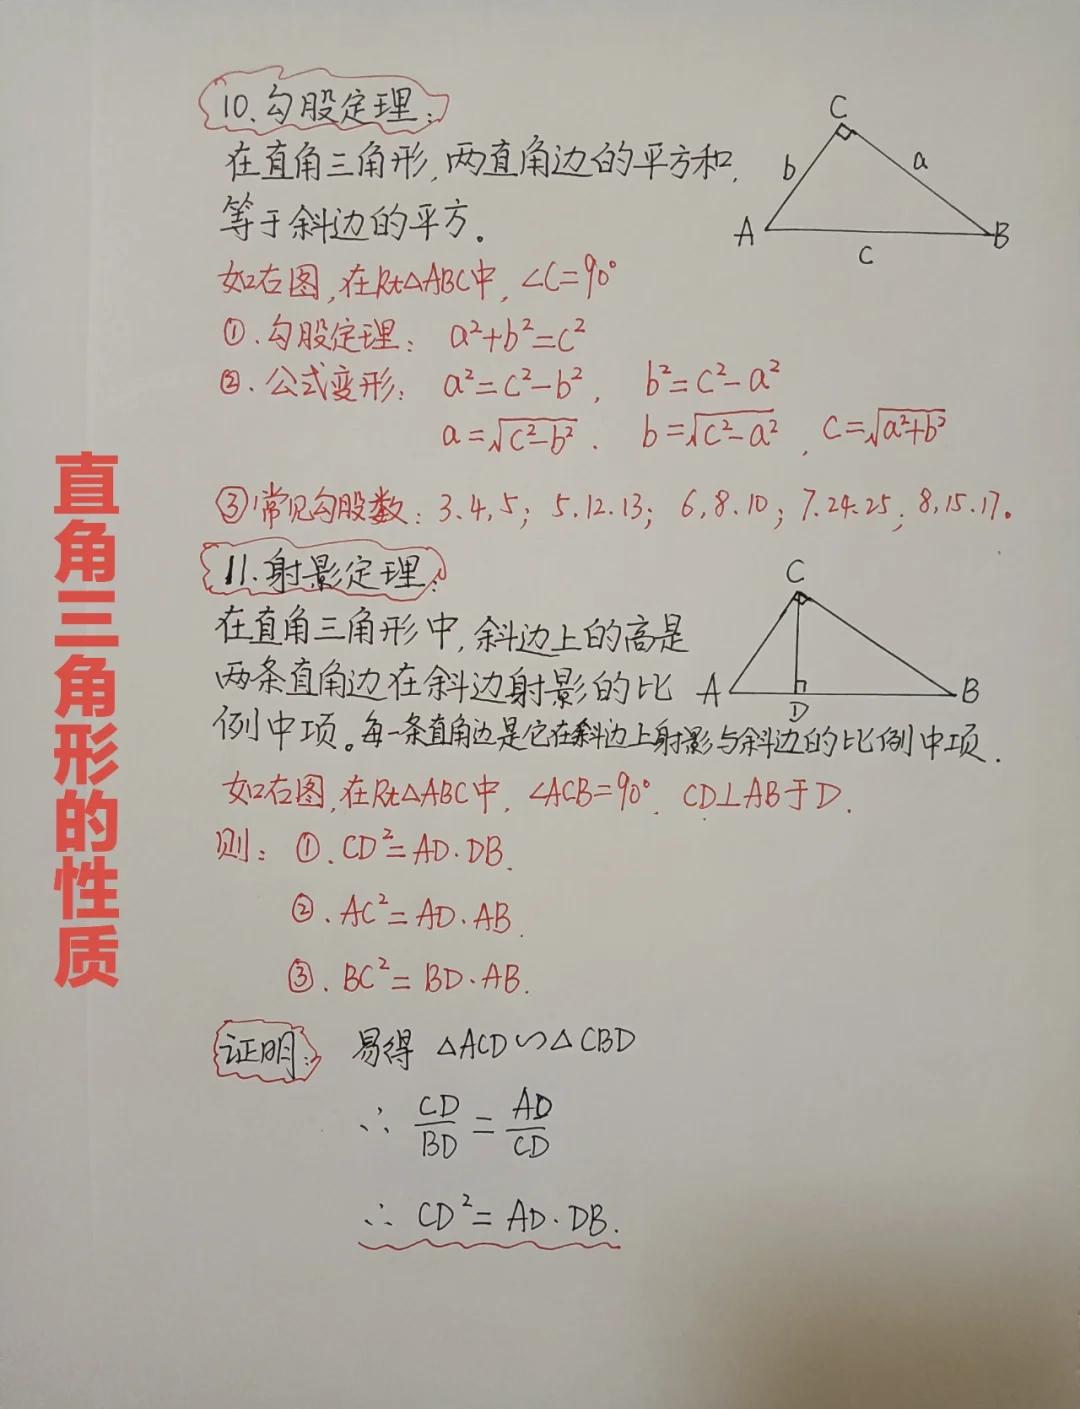 直角三角形的性质
10、勾股定理:
在直角三角形,两直角边的平方和,
等于斜边的平方.
如右图,在Rt△ABC中,∠C=90°
①.勾股定理: a²+b²=c²
②.公式变形: a²=c²-b², b²=c²-a²
a=√(c²-b²). b=√(c²-a²), c=√(a²+b²)
③常见勾股数: 3.4,5; 5.12.13; 6,8.10; 7.24.25; 8,15.17。
C
b
a
A
B
c
11.射影定理:
在直角三角形中,斜边上的高是
两条直角边在斜边射影的比
例中项。每一条直角边是它在斜边上射影与斜边的比例中项.
C
A
D
B
如右图,在Rt△ABC中,∠ACB=90°. CD⊥AB于D.
则: ①.CD²=AD·DB.
②.AC²=AD·AB.
③.BC²=BD·AB.
证明: 易得 △ACD∽△CBD
∴ CD/BD = AD/CD
∴ CD²=AD·DB.